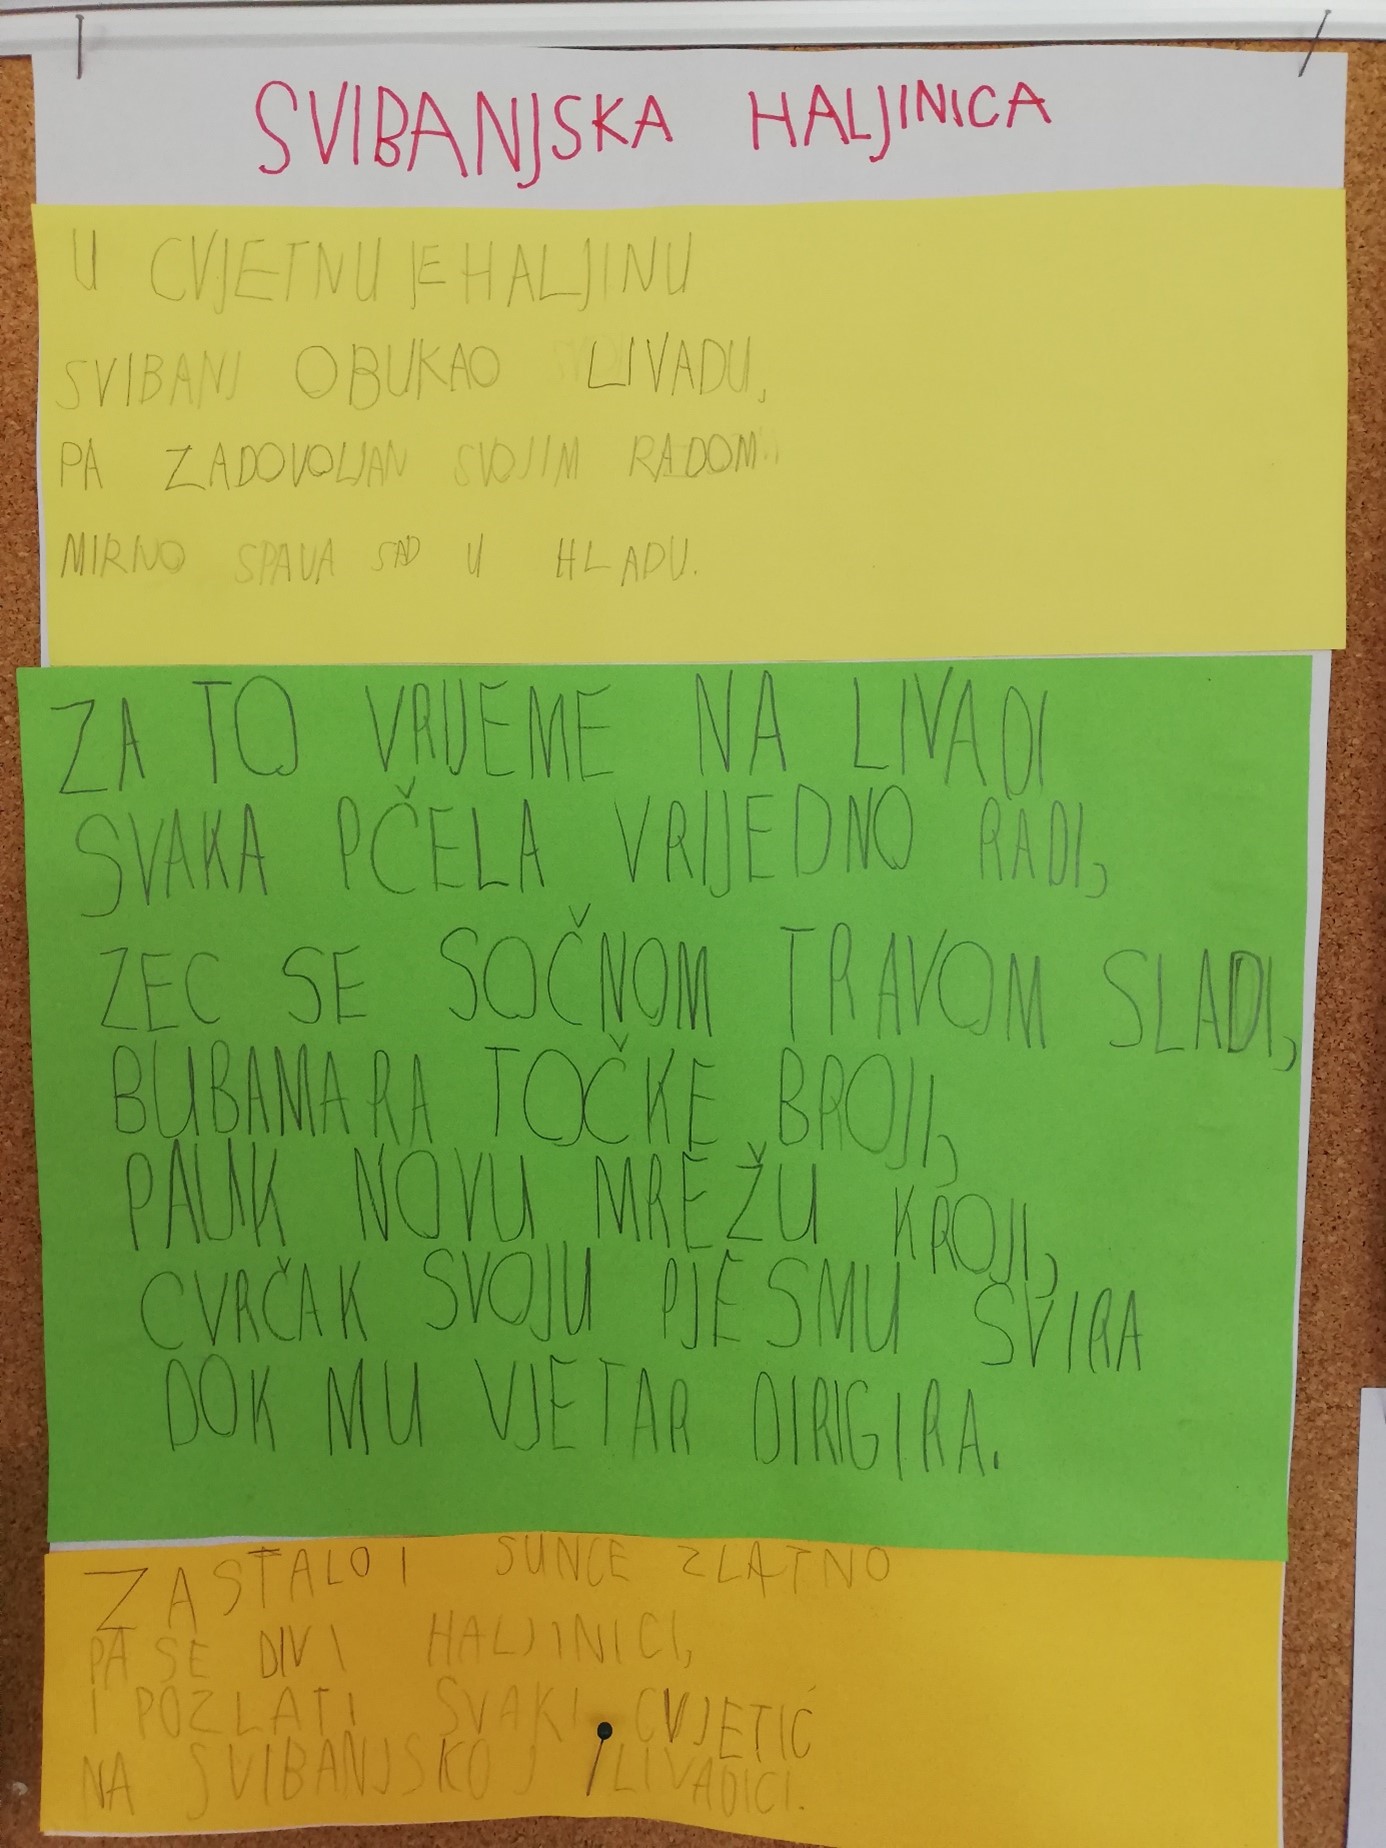 SVIBANJSKA HALJINICA
U CVJETNU JE HALJINU
SVIBANJ OBUKAO LIVADU,
PA ZADOVOLJAN SVOJIM RADOM
MIRNO SPAVA SAD U HLADU.
ZA TO VRIJEME NA LIVADI
SVAKA PČELA VRIJEDNO RADI,
ZEC SE SOČNOM TRAVOM SLADI,
BUBAMARA TOČKE BROJI,
PAUK NOVU MREŽU KROJI,
CVRČAK SVOJU PJESMU SVIRA
DOK MU VJETAR DIRIGIRA.
ZASTALO I SUNCE ZLATNO
PA SE DIVI HALJINICI,
I POZLATI SVAKI CVJETIĆ
NA SVIBANJSKOJ LIVADICI.